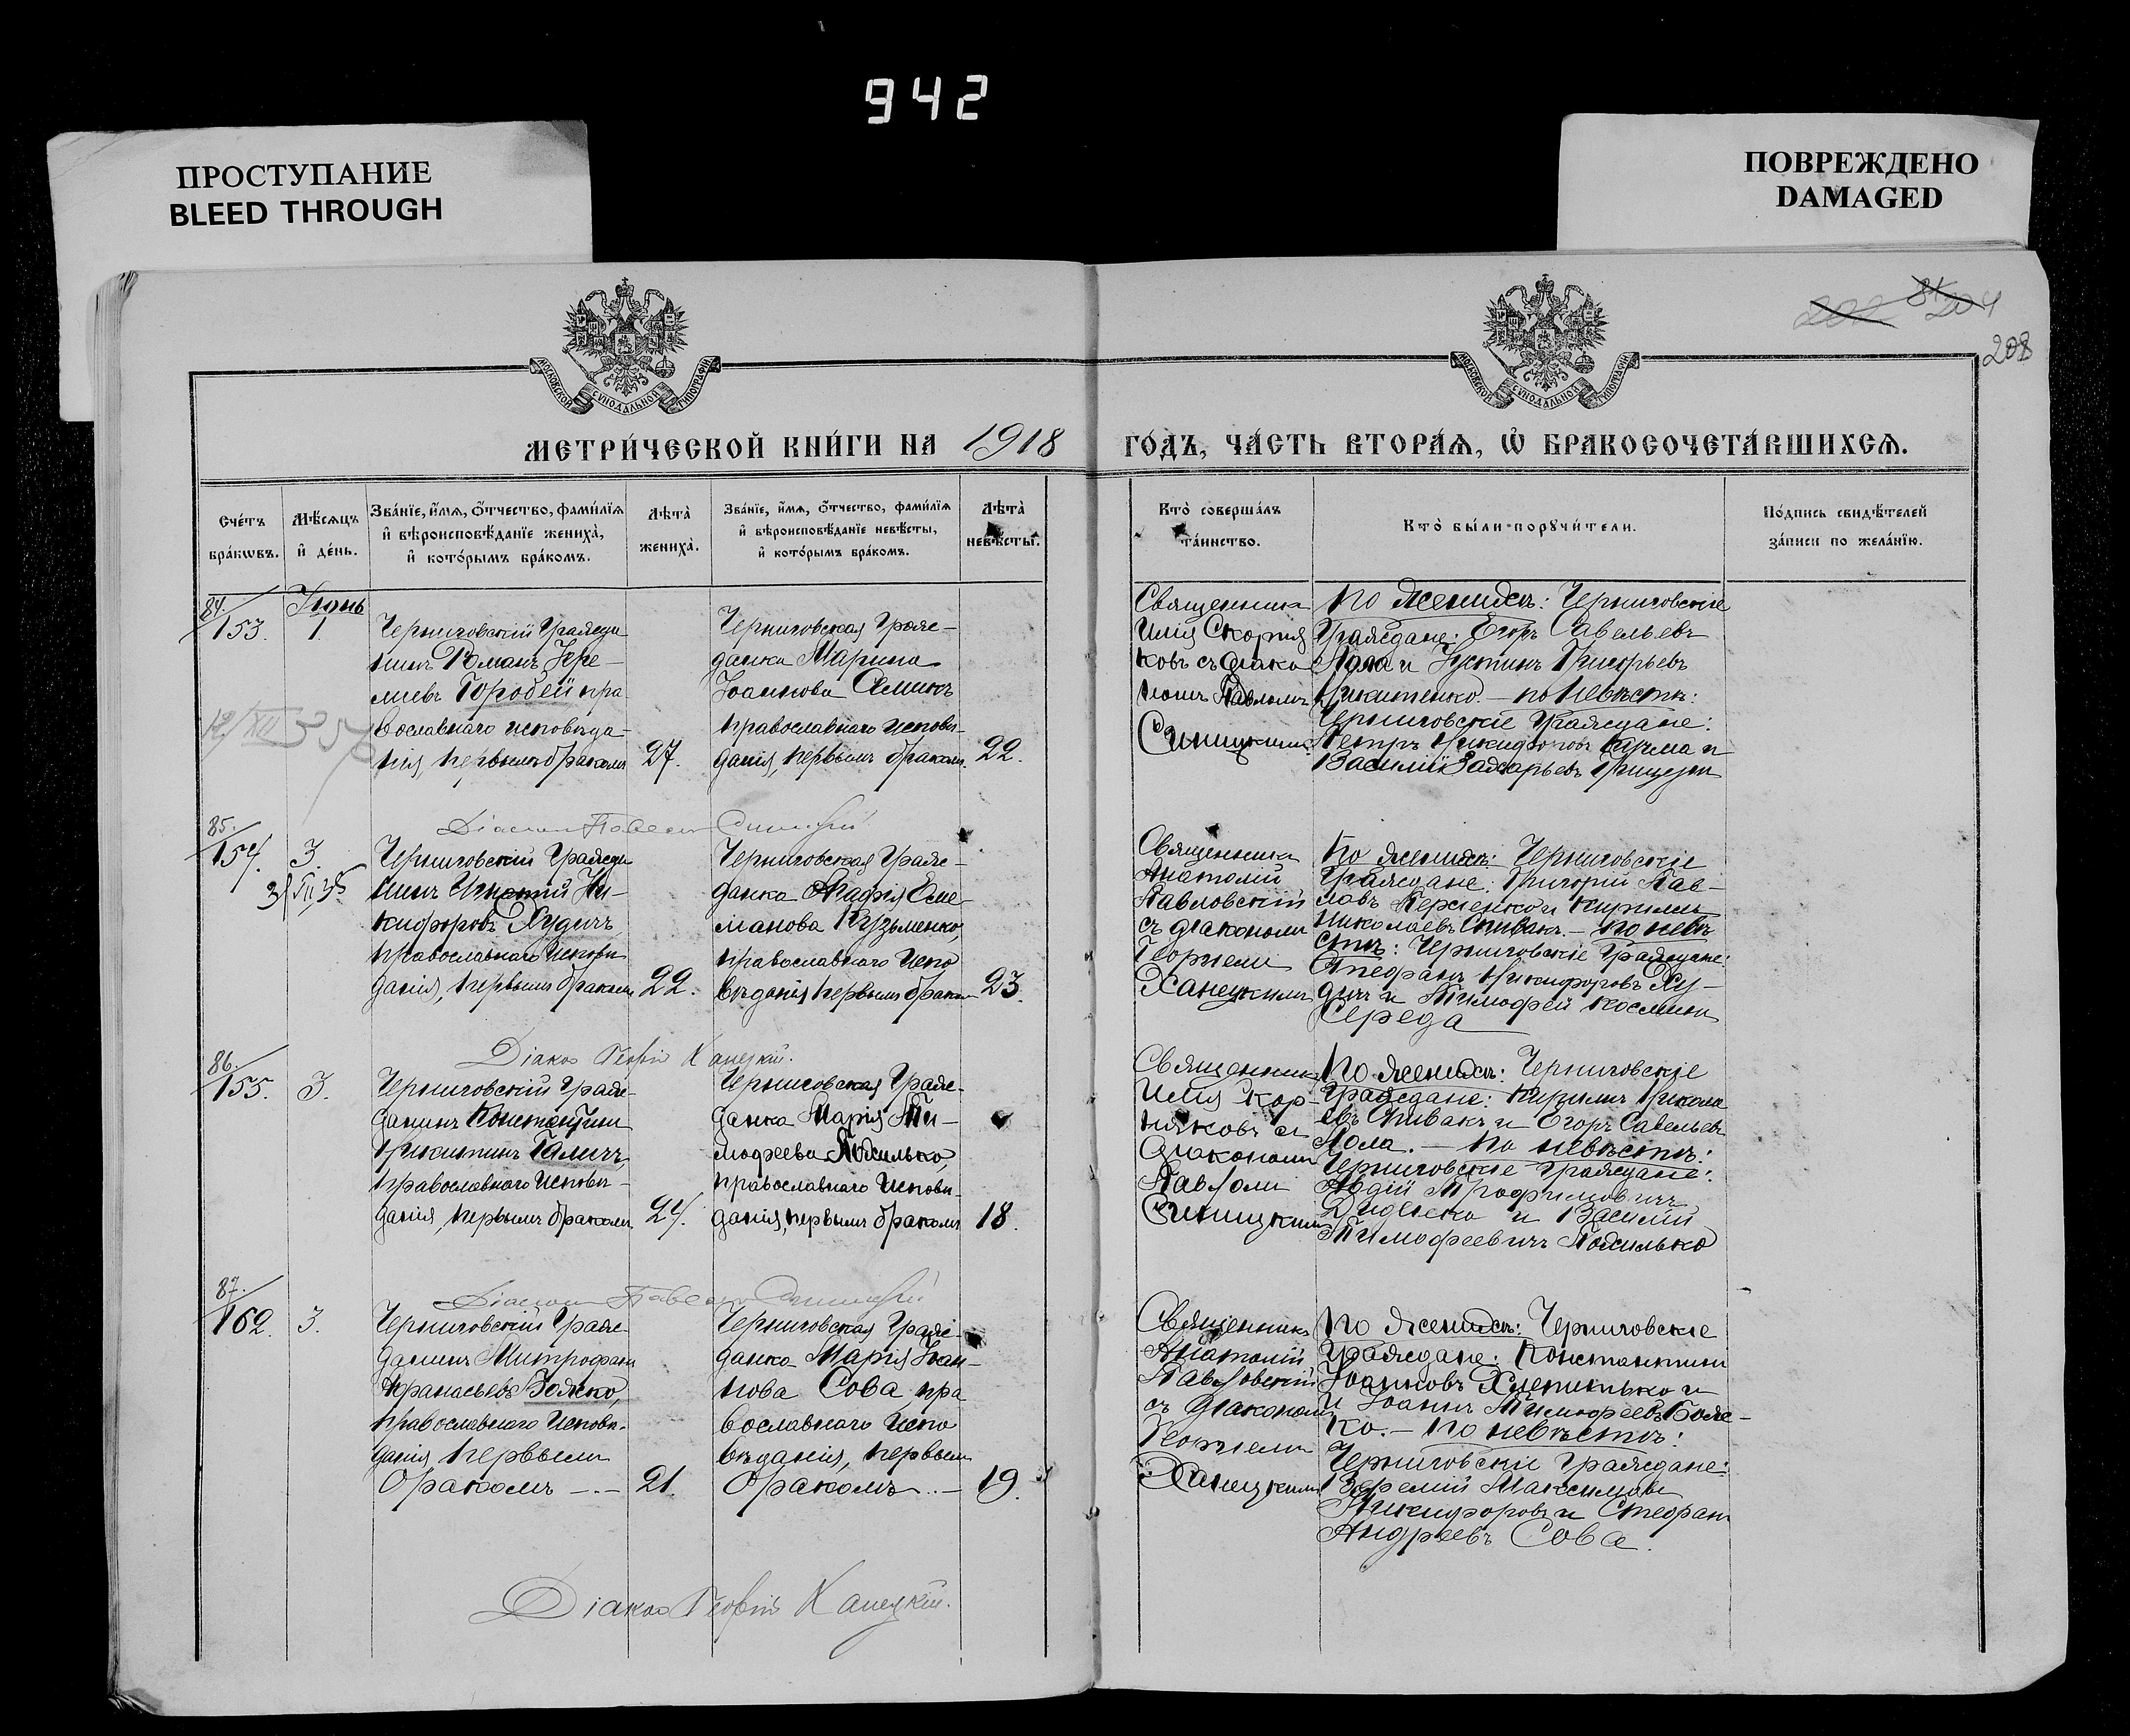 942
ПРОСТУПАНИЕ
BLEED THROUGH
ПОВРЕЖДЕНО
DAMAGED
204
208
МОСКОВСКОЙ СУНОДАЛЬНОЙ ТИПОГРАФІИ
МОСКОВСКОЙ СУНОДАЛЬНОЙ ТИПОГРАФІИ
МЕТРИ́ЧЕСКОЙ КНИ́ГИ НА 1918 ГО́ДЪ, ЧА́СТЬ ВТОРА́Ѧ, Ѽ БРАКОСОЧЕТА́ВШИХСѦ.
Сче́тъ бра́кѡвъ.
Мѣ́сѧцъ и҆ де́нь.
Зва́нїе, и҆́мѧ, ѻ҆́тчество, фами́лїѧ
и҆ вѣроисповѣ́данїе жениха̀,
и҆ кото́рымъ бра́комъ.
Лѣта̀ жениха̀.
Зва́нїе, и҆́мѧ, ѻ҆́тчество, фами́лїѧ
и҆ вѣроисповѣ́данїе невѣ́сты,
и҆ кото́рымъ бра́комъ.
Лѣта̀ невѣ́сты.
Кто̀ соверша́лъ
та́инство.
Кто̀ бы́ли порꙋчи́тели.
По́дпись свидѣ́телей
за́писи по жела́нїю.
84.
153.
Іюнь
1.
Черниговскій Гражда
нинъ Романъ
Городей пра
вославнаго исповѣда-
нія, первымъ бракомъ
27.
Черниговская Граж-
данка Марина
Іоаннова Семикъ
православнаго исповѣ-
данія, первымъ бракомъ.
22.
Священникъ
Илія Скорня
ковъ съ діако
номъ Павломъ
Синицкимъ.
По женихѣ: Черниговскіе
Граждане: Егоръ Савельевъ
Лола и Устинъ Григорьевъ
Никитенко. – по невѣстѣ:
Черниговскіе Граждане:
Петръ Никифоровъ Кучма и
Василій Захарьевъ
Діаконъ Павелъ Синицкій
85.
154.
3.
Черниговскій Гражда
нинъ Игнатій Ни-
кифоровъ Худичъ,
православнаго исповѣ
данія, первымъ бракомъ
22.
Черниговская Граж-
данка Агафія
Кузьменко,
православнаго испо
вѣданія первымъ бракомъ
23.
Священникъ
Анатолій
Павловскій
съ діакономъ
Георгіемъ
Ханецкимъ
По женихѣ: Черниговскіе
Граждане: Григорій Пав-
ловъ и Кириллъ
Николаевъ Спивакъ. – по невѣ
стѣ: Черниговскіе Граждане:
Стефанъ Никифоровъ Ху-
дичъ и Тимофей Космичъ
Середа
Діаконъ Георгій Ханецкій.
86.
155.
3.
Черниговскій Граж-
данинъ Константинъ
Никитинъ Галичъ,
православнаго исповѣ-
данія, первымъ бракомъ
24.
Черниговская Граж-
данка Марія Ти-
мофеева Пожилько,
православнаго исповѣ-
данія, первымъ бракомъ
18.
Священникъ
Илія Скор-
няковъ съ
діакономъ
Павломъ
Синицкимъ
По женихѣ: Черниговскіе
Граждане: Кириллъ Никола
евъ Спивакъ и Егоръ Савельевъ
Лола. – По невѣстѣ:
Черниговскіе Граждане:
Авдій Трофимовичъ
Диденко и Василій
Тимофеевичъ Пожилько
Діаконъ Павелъ Синицкій
87.
162.
3.
Черниговскій Граж-
данинъ Митрофанъ
Афанасьевъ Божко,
православнаго исповѣ-
данія первымъ
бракомъ –.–
21.
Черниговская Граж-
данка Марія Іоан-
нова Сова пра
вославнаго испо
вѣданія, первымъ
бракомъ..–
19.
Священникъ
Анатолій
Павловскій
съ діакономъ
Георгіемъ
Ханецкимъ
По женихѣ: Черниговскіе
Граждане: Константинъ
Іоанновъ и
и Іоаннъ Тимофеевъ Бож-
ко. – По невѣстѣ:
Черниговскіе Граждане:
Максимовъ
Никифоровъ и Стефанъ
Андреевъ Сова.
Діаконъ Георгій Ханецкій.